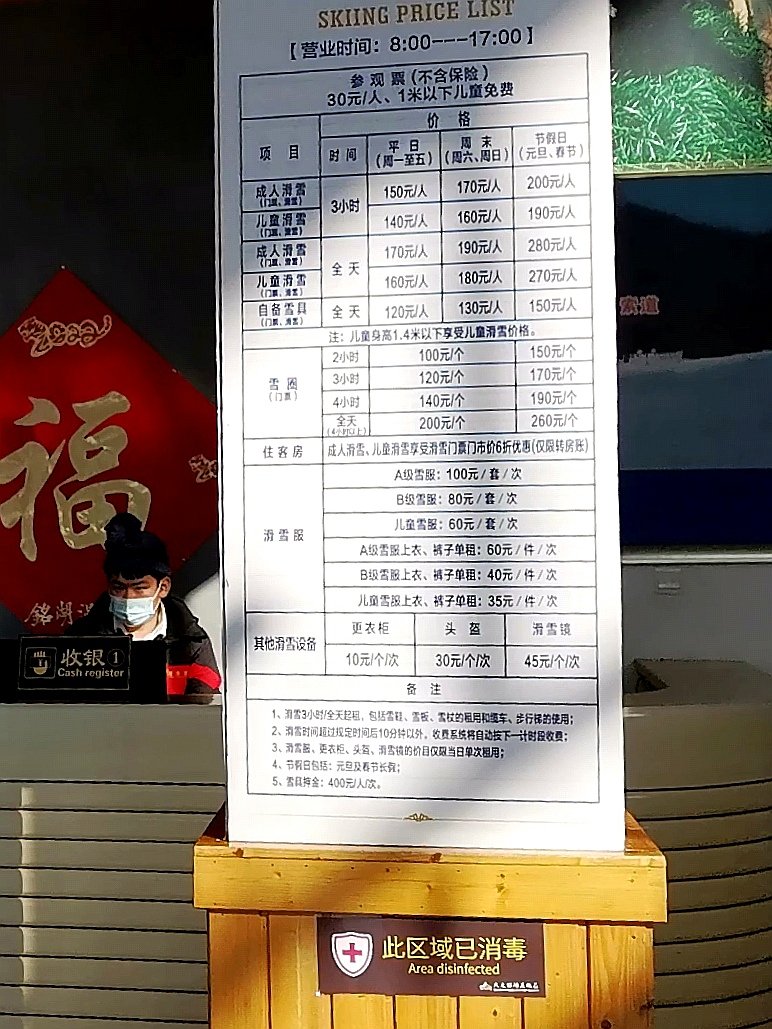 SKIING PRICE LIST
【营业时间：8:00---17:00】
参观票（不含保险）
30元/人、1米以下儿童免费
项 目 时 间 价 格
平 日 周 末 节假日
（周一至五） （周六、周日） （元旦、春节）
成人滑雪 3小时 150元/人 170元/人 200元/人
（门票、滑雪）
儿童滑雪 140元/人 160元/人 190元/人
（门票、滑雪）
成人滑雪 全 天 170元/人 190元/人 280元/人
（门票、滑雪）
儿童滑雪 160元/人 180元/人 270元/人
（门票、滑雪）
自备雪具 全 天 120元/人 130元/人 150元/人
（门票、滑雪）
注：儿童身高1.4米以下享受儿童滑雪价格。
雪 圈
（门票）
2小时 100元/个 150元/个
3小时 120元/个 170元/个
4小时 140元/个 190元/个
全天 200元/个 260元/个
（4小时以上）
住 客 房 成人滑雪、儿童滑雪享受滑雪门票门市价6折优惠(仅限转房账)
滑 雪 服
A级雪服：100元 / 套 / 次
B级雪服：80元 / 套 / 次
儿童雪服：60元 / 套 / 次
A级雪服上衣、裤子单租：60元 / 件 / 次
B级雪服上衣、裤子单租：40元 / 件 / 次
儿童雪服上衣、裤子单租：35元 / 件 / 次
其他滑雪设备 更衣柜 头 盔 滑雪镜
10元/个/次 30元/个/次 45元/个/次
备 注
1、滑雪3小时/全天起租，包括雪鞋、雪板、雪杖的租用和缆车、步行梯的使用；
2、滑雪时间超过规定时间后10分钟以外，收费系统将自动按下一计时段收费；
3、滑雪服、更衣柜、头盔、滑雪镜的价目仅限当日单次租用；
4、节假日包括：元旦及春节长假；
5、雪具押金：400元/人/次。
福
收银①
Cash register
索道
此区域已消毒
Area disinfected